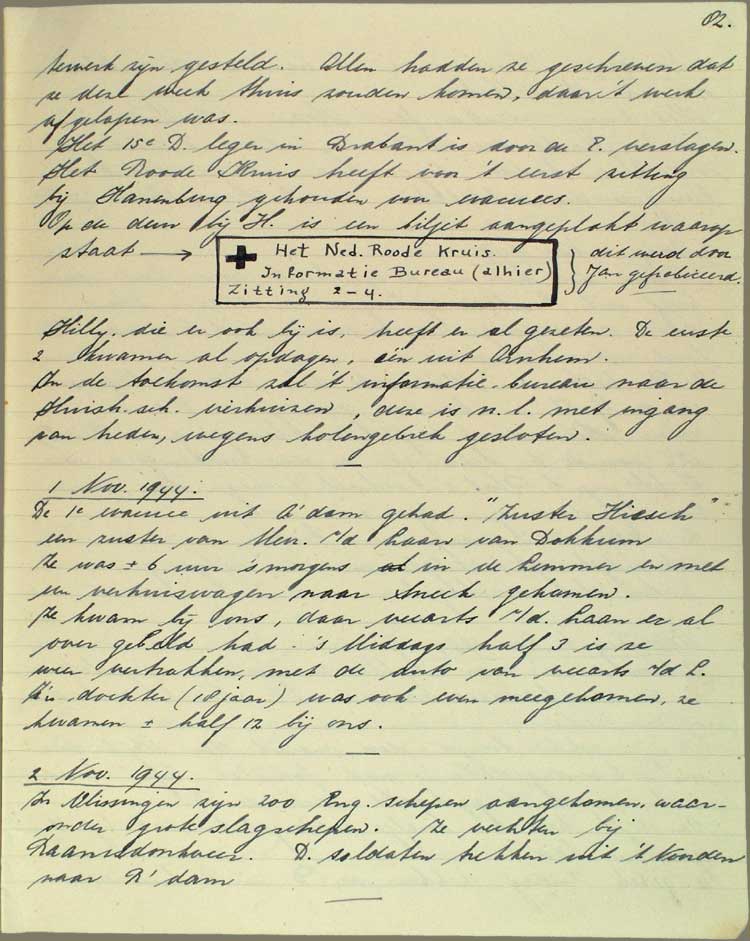 82.
tewerk zijn gesteld. Allen hadden ze geschreven dat
ze deze week thuis zouden komen, daar 't werk
afgelopen was.
Het 15e D. leger in Brabant is door de E. verslagen.
Het Roode Kruis heeft voor 't eerst zitting
bij Hanenburg gehouden voor evacuees.
Op de deur bij H. is een biljet aangeplakt waarop
staat →
Het Ned. Roode Kruis.
Informatie Bureau (alhier)
Zitting 2-4.
dit werd door
Jan gefabriceerd.
Hilly, die er ook bij is, heeft er al gezeten. De eerste
2 kwamen al opdagen, één uit Arnhem.
In de toekomst zal 't informatie-bureau naar de
Huish. sch. verhuizen, deze is n.l. met ingang
van heden, wegens kolengebrek gesloten.
1 Nov. 1944.
De 1e evacuee uit A'dam gehad. "Zuster Hiesch"
een zuster van Mevr. v/d Laan van Dokkum
Ze was ± 6 uur 's morgens in de Lemmer en met
een verhuiswagen naar Sneek gekomen.
Ze kwam bij ons, daar veearts v/d. Laan er al
over gebeld had. 's Middags half 3 is ze
weer vertrokken, met de auto van veearts v/d L.
Z'n dochter (18 jaar) was ook even meegekomen, ze
kwamen ± half 12 bij ons.
2 Nov. 1944.
In Vlissingen zijn 200 Eng. schepen aangekomen, waar-
onder grote slagschepen. Ze vechten bij
Raamsdonkveer. D. soldaten trekken uit 't Noorden
naar R'dam